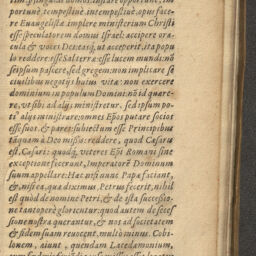 portunè tempestiuè intempestiuè, opus face-
re Euangelistæ: implere ministerium Christi
esse speculatorem domini Israel: accipere oracu-
la & voces Dei: easq; ut acceperit, ita popu-
lo reddere: esse Sal terræ: esse lucem mundi: nõ
seipsum pascere, sed gregem: non implicare se
ciuilibus negotijs huius vitæ: non exercere
dominium in populum Domini: nõ id quære-
re, vt sibi ab alijs ministretur, sed ipsum po-
ti' alijs ministrare: omnes Epõs putare socios
esse suos, & pares: subiectum esse Principibus
tãquam à Deo missis: reddere, quod Cæsaris
est, Cæsari: quodq; veteres Epi Romani sine
exceptione fecerunt, Imperatorẽ Dominum
suum appellare: Hæc nisi nunc Papæ faciant,
& nisi ea, quæ diximus, Petrus fecerit, nihil
est quòd de nomine Petri, & de ista successio-
ne tantopere glorientur: quod autem de secess-
sione nostra queruntur, & nos ad societatem
& fidem suam reuocent, multò minus. Cobi-
lonem, aiunt, quendam Lacedæmonium,